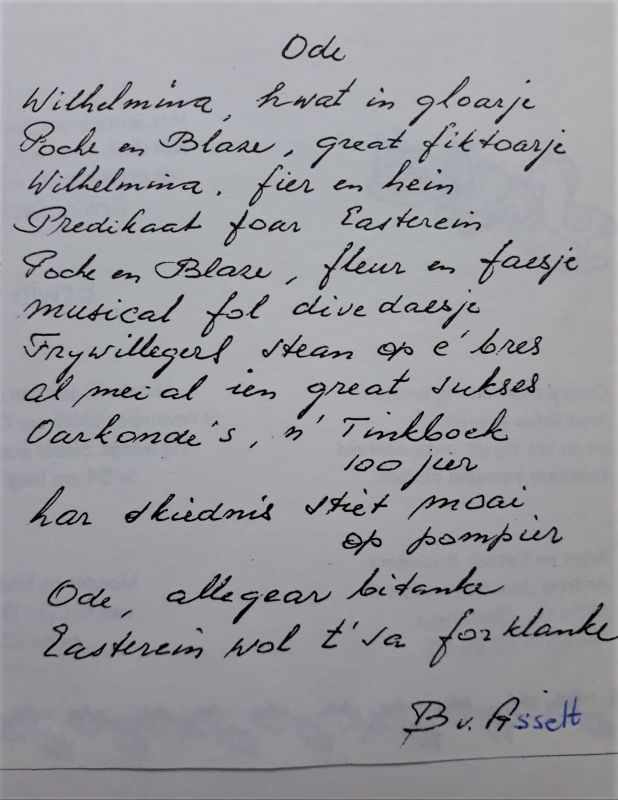 Ode
Wilhelmina, hwat in gloarje
Poche en Blaze, great fiktoarje
Wilhelmina. fier en hein
Predikaat foar Easterein
Poche en Blaze, fleur en faesje
musical fol divedaesje
Frywillegers stean op e' bres
al mei al ien great sukses
Oarkonde's, n' Tinkboek
100 jier
har skiednis stiet moai
op pompier
Ode, allegear bitanke
Easterein wol t' sa forklanke
B v. Asselt